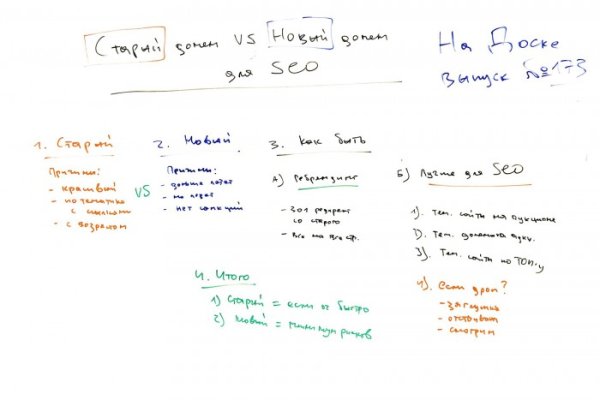 Старый домен VS Новый домен
для SEO
На Доске
выпуск №173
1. Старый
Причины:
- красивый
- по тематике
с ссылками
- с возрастом
VS
2. Новый
Причины:
- дольше
- нет санкций
3. Как быть
А) Ребрендинг
- 301 редирект
со старого
- Все на все стр.
Б) Лучше для SEO
1). Тем. сайты на аукционе
2). Тем. домены аукц.
3). Тем. сайты по ТОП-у
4). если дроп?
- заглушка
- отстаивать
- смотрим
4. Итого
1) Старый = если оч быстро
2) Новый = минимум рисков